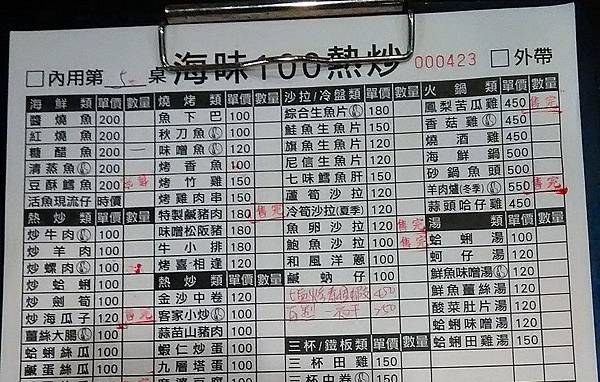 □內用第5桌 海味100熱炒 000423 □外帶
海鮮類 單價 數量
醬燒魚 200
紅燒魚 200
糖醋魚 200
清蒸魚 200
豆酥鱈魚 200
活魚現流仔 時價
熱炒類 單價 數量
炒牛肉 100
炒羊肉 100
炒螺肉 100
炒蛤蜊 100
炒劍筍 100
炒海瓜子 120 售完
薑絲大腸 100
蛤蜊絲瓜 100
鹹蛋絲瓜 100
燒烤類 單價 數量
魚下巴 100
秋刀魚 100
味噌魚 120
烤香魚 100
烤竹雞 150
烤雞肉串 150
特製鹹豬肉 180 售完
味噌松阪豬 180
牛小排 180
烤喜相逢 120
熱炒類 單價 數量
金沙中卷 120
客家小炒 100
蒜苗山豬肉 100
蝦仁炒蛋 100
九層塔蛋 100
麻婆豆腐 100
沙拉/冷盤類 單價 數量
綜合生魚片 180
鮭魚生魚片 150
旗魚生魚片 120
尼信生魚片 150
七味鱈魚肝 150
蘆筍沙拉 120
冷筍沙拉(夏季) 120
魚卵沙拉 120 售完
鮑魚沙拉 100 售完
和風洋蔥 100
鹹蚋仔 100
三杯/鐵板類 單價 數量
三杯田雞 150
三杯中卷 150
火鍋類 單價 數量
鳳梨苦瓜雞 450 售完
香菇雞 450
燒酒雞 450
海鮮鍋 500
砂鍋魚頭 500
羊肉爐(冬季) 550 售完
蒜頭哈仔雞 450
湯類 單價 數量
蛤蜊湯 100
蚵仔湯 100
鮮魚味噌湯 120
鮮魚薑絲湯 120
酸菜肚片湯 120
蛤蜊味噌湯 120
蛤蜊田雞湯 150